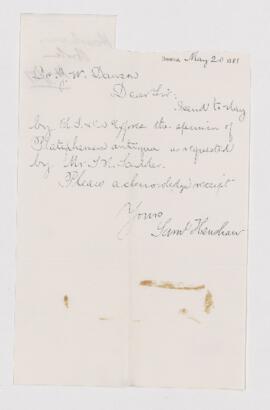 May 20 1881
Dr. J. W. Dawson
Dear Sir.
I send to-day
by U.S. & C. Express the specimen of
Platephemera antiqua as requested
by Mr. S. H. Scudder.
Please acknowledge receipt
Yours
Saml Henshaw